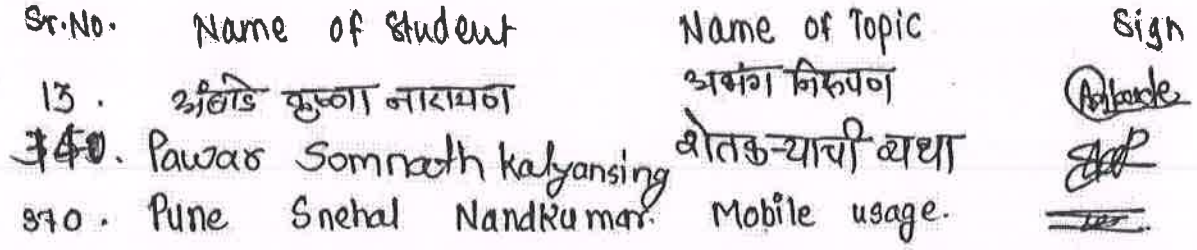 Sr.No. Name of Student Name of Topic Sign
13. अंबाडे कृष्णा नारायण अभंग निरुपण Ambarde
340. Pawar Somnath Kalyansing शेतकऱ्याची व्यथा
370. Pune Snehal Nandkumar. Mobile usage.